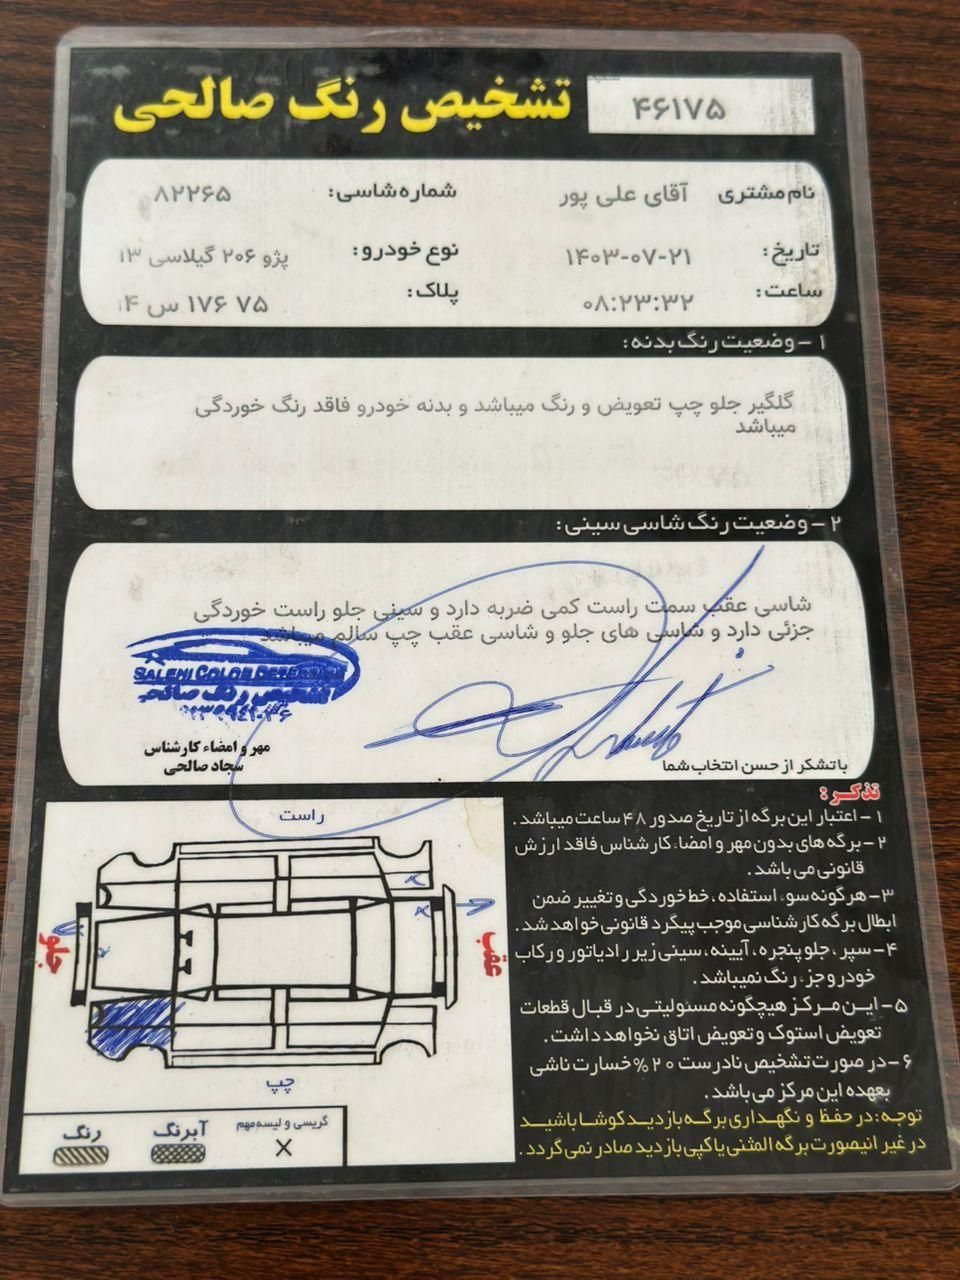 تشخیص رنگ صالحی
۴۶۱۷۵
نام مشتری آقای علی پور شماره شاسی: ۸۲۲۶۵
تاریخ: ۱۴۰۳-۰۷-۲۱ نوع خودرو: پژو ۲۰۶ گیلاسی ۱۳
ساعت: ۰۸:۲۳:۳۲ پلاک: ۱۴ س ۱۷۶ ۷۵
۱ - وضعیت رنگ بدنه:
گلگیر جلو چپ تعویض و رنگ میباشد و بدنه خودرو فاقد رنگ خوردگی
میباشد
۲ - وضعیت رنگ شاسی سینی:
شاسی عقب سمت راست کمی ضربه دارد و سینی جلو راست خوردگی
جزئی دارد و شاسی های جلو و شاسی عقب چپ سالم میباشد
SALEHI COLOR
تشخیص رنگ صالحی
مهر و امضاء کارشناس
سجاد صالحی
با تشکر از حسن انتخاب شما
تذکر:
۱- اعتبار این برگه از تاریخ صدور ۴۸ ساعت میباشد.
۲- برگه های بدون مهر و امضاء کارشناس فاقد ارزش
قانونی می باشد.
۳- هرگونه سوء استفاده، خط خوردگی و تغییر ضمن
ابطال برگه کارشناسی موجب پیگرد قانونی خواهد شد.
۴- سپر، جلو پنجره، آیینه، سینی زیر رادیاتور و رکاب
خودرو جزء رنگ نمیباشد.
۵- این مرکز هیچگونه مسئولیتی در قبال قطعات
تعویض استوک و تعویض اتاق نخواهد داشت.
۶- در صورت تشخیص نادرست ۲۰% خسارت ناشی
بعهده این مرکز می باشد.
توجه: در حفظ و نگهداری برگه بازدید کوشا باشید
در غیر اینصورت برگه المثنی یا کپی بازدید صادر نمی گردد.
راست
جلو
عقب
چپ
رنگ
آبرنگ
گریسی و لیسه مهم
X